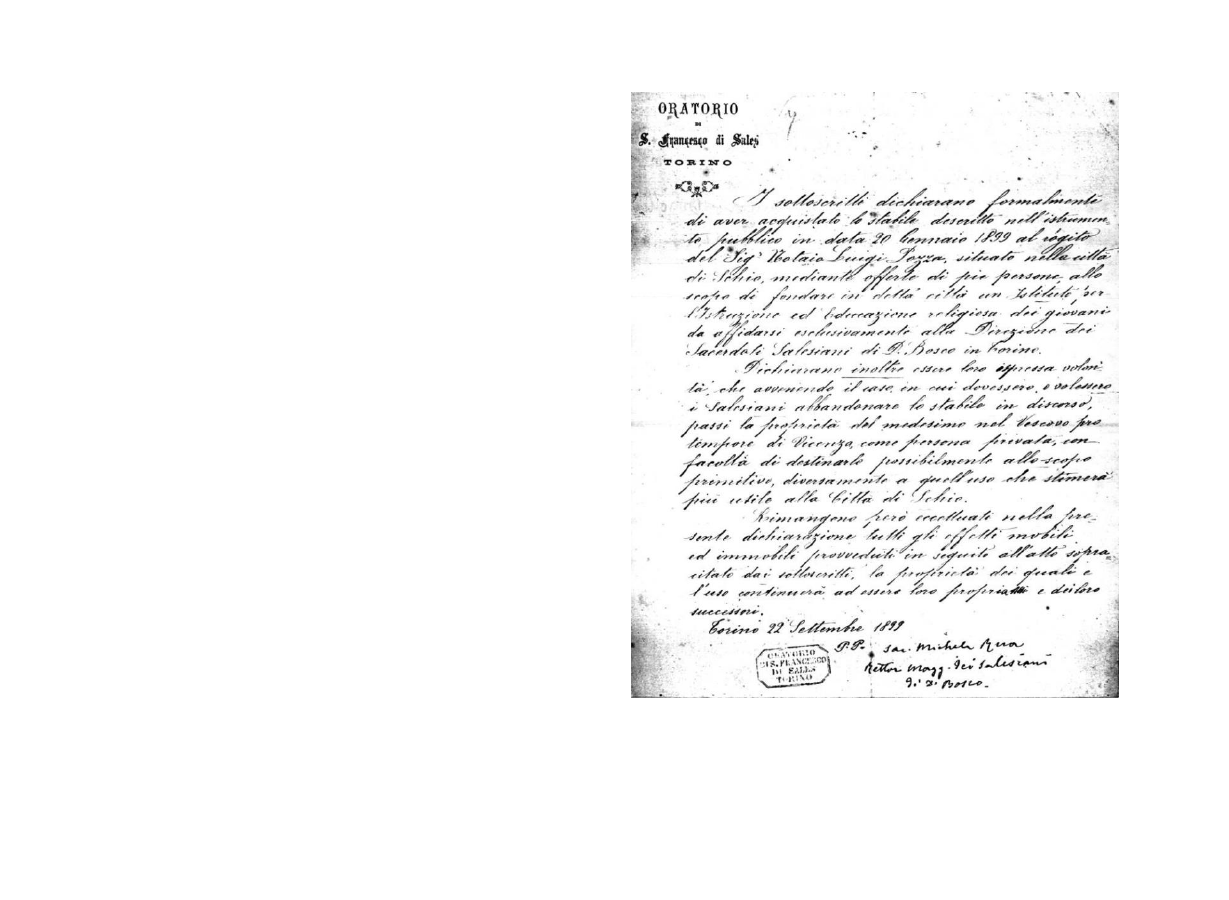 ORATORIO
DI
S. Francesco di Sales
TORINO
I sottoscritti dichiarano formalmente
di aver acquistato lo stabile descritto nell'istrumen=
to pubblico in data 20 Gennaio 1899 al rogito
del Sigr Notaio Luigi Pozza, situato nella città
di Schio, mediante offerte di pie persone, allo
scopo di fondare in detta città un Istituto per
l'Istruzione ed Educazione religiosa dei giovani
da affidarsi esclusivamente alla Direzione dei
Sacerdoti Salesiani di D. Bosco in Torino.
Dichiarano inoltre essere loro espressa volon-
tà, che avvenendo il caso, in cui dovessero, o volessero
i Salesiani abbandonare lo stabile in discorso,
passi la proprietà del medesimo nel Vescovo pro
tempore di Vicenza, come persona privata, con
facoltà di destinarlo possibilmente allo scopo
primitivo, diversamente a quell'uso che stimerà
più utile alla Città di Schio.
Rimangono però eccettuati nella pre=
sente dichiarazione tutti gli effetti mobili
ed immobili provveduti in seguito all'atto sopra=
citato dai sottoscritti, la proprietà dei quali e
l'uso continuerà ad essere loro e dei loro
successori.
Torino 22 Settembre 1899
P.P. Sac. Michele Rua
Rettor Magg. dei Salesiani
di D. Bosco.
ORATORIO
DI S. FRANCESCO
DI SALES
TORINO